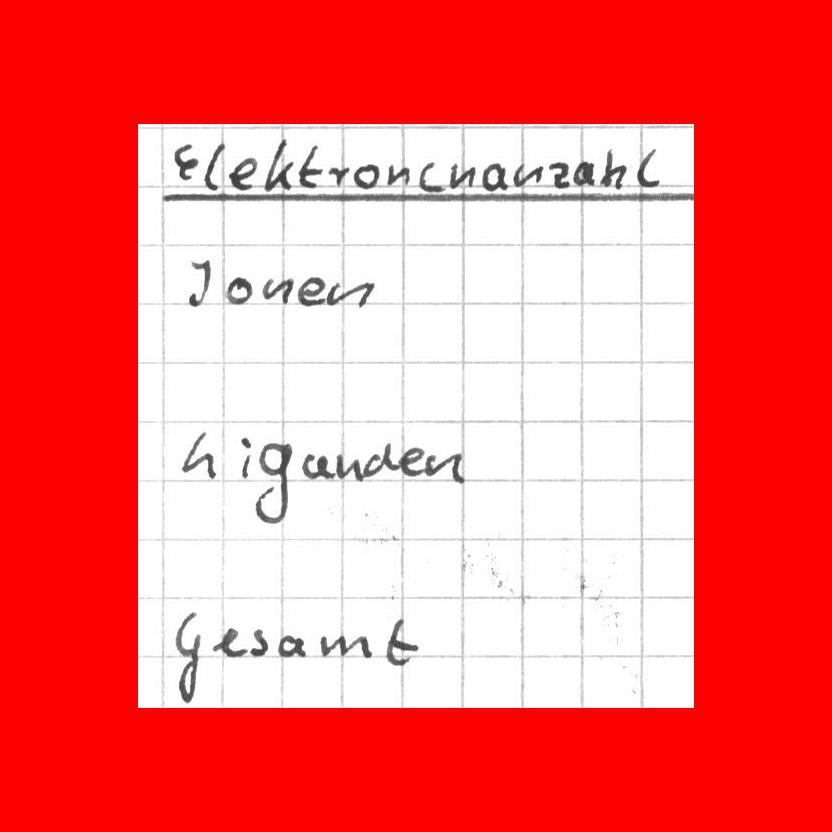 Elektronenanzahl
Ionen
Liganden
Gesamt